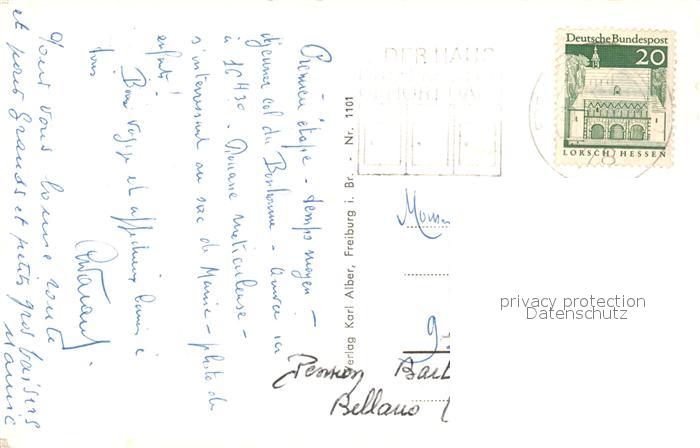 Première étape - temps moyen -
déjeuner col du Bonhomme - ici
à 16H30. Douane méticuleuse -
s'intéressant au sac de Mamie - photo des
enfants!
Bon voyage et affectueux
tous
Pour vous bonne route
et pour grands et petits gros baisers
Mamie
Verlag Karl Alber, Freiburg i. Br. - Nr. 1101
DER HAUS
GEHÖRT DA
Deutsche Bundespost
20
LORSCH HESSEN
78
Pension
Bellano
privacy protection
Datenschutz